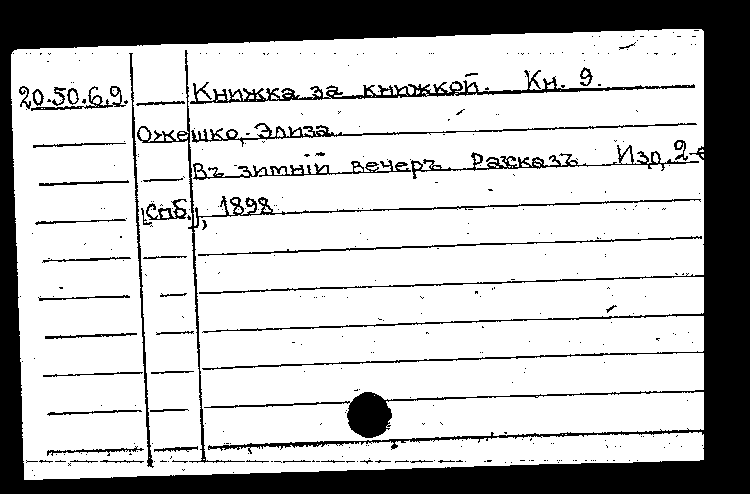 20.50.6.9. Книжка за книжкой. Кн. 9.
Ожешко, Элиза.
Въ зимній вечеръ. Разсказъ. Изд. 2-е
[Спб.], 1898.